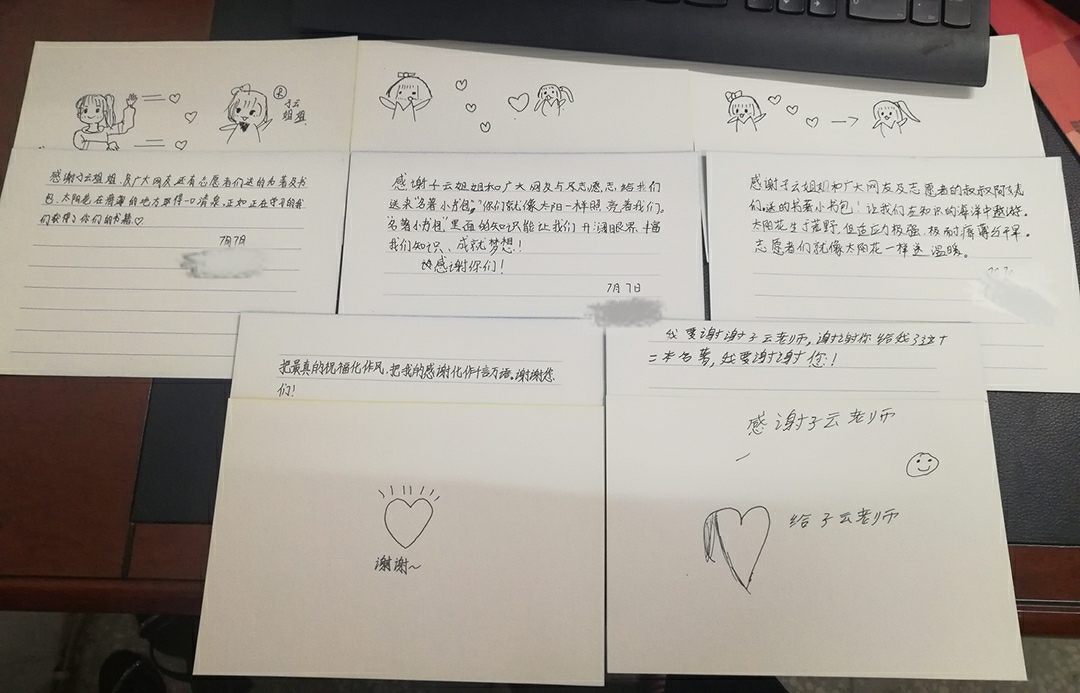 子云
姐姐
感谢子云姐姐、及广大网友还有志愿者们送的名著及书
包,太阳花在滑薄的地方取得一口清泉,正如正在守子的我
们获得了你们的书籍♡
7月7日
感谢子云姐姐和广大网友与及志愿志给我们
送来“名著小书包,”你们就像太阳一样照亮着我们。
“名著小书包”里面的知识能让我们开阔眼界、增
我们知识、成就梦想!
感谢你们!
7月7日
感谢子云姐姐和广大网友及志愿者的叔叔阿姨
们。送的书著小书包!让我们在知识的海洋中遨游。
太阳花生于荒野,但适应力极强、极耐瘠薄与干旱。
志愿者们就像太阳花一样这温暖。
把最真的祝福化作风,把我的感谢化作千言万语。谢谢您
们!
谢谢~
我要谢谢子云老师,谢谢你给我了这十
二本名著,我要谢谢您!
感谢子云老师
给子云老师